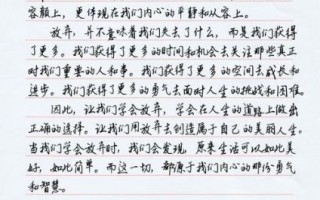 容颜上，更体现在我们内心的平静和从容上。
放弃，并不意味着我们失去了什么，而是我们获得
了更多。我们获得了更多的时间和机会去关注那些真正
对我们重要的人和事。我们获得了更多的空间去成长和
进步。我们获得了更多的勇气去面对人生的挑战和困难。
因此，让我们学会放弃，学会在人生的道路上做出
正确的选择。让我们用放弃去创造属于自己的美丽人生。
当我们学会放弃时，我们会发现，原来生活可以如此美
好，如此简单。而这一切，都源于我们内心的那份勇气
和智慧。